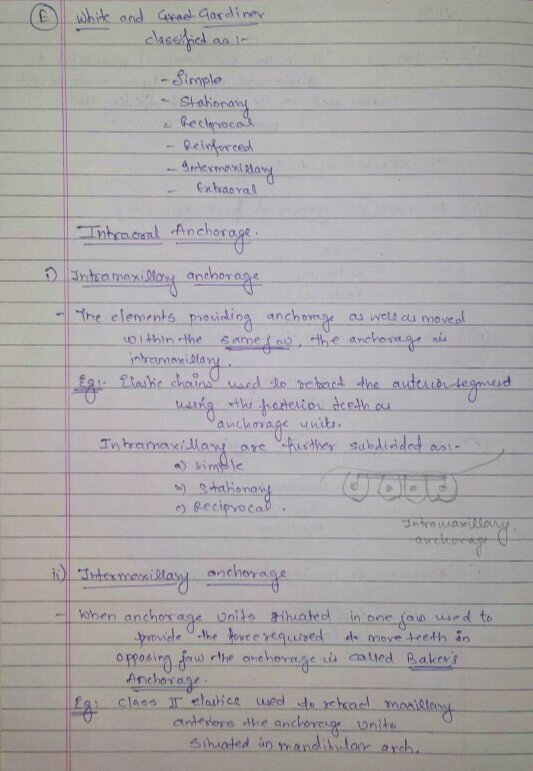 E White and Graet Gardiner
classified as :-
- Simple
- Stationary
- Reciprocal
- Reinforced
- Intermaxillary
- Extraoral
Intraoral Anchorage.
i) Intramaxillary anchorage
- The elements providing anchorage as well as moved
within the same jaw, the anchorage is
intramaxillary.
Eg:- Elastic chains used to retract the anterior segment
using the posterior teeth as
anchorage units.
Intramaxillary are further subdivided as:-
a) Simple
b) Stationary
c) Reciprocal.
Intramaxillary.
anchorage
ii) Intermaxillary anchorage
- When anchorage Units situated in one jaw used to
provide the force required to move teeth in
opposing jaw the anchorage is called Baker's
Anchorage.
Eg: Class II elastics used to retract maxillary
anteriors the anchorage Units
situated in mandibular arch.